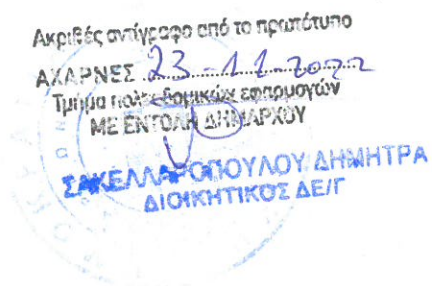 Ακριβές αντίγραφο από το πρωτότυπο
ΑΧΑΡΝΕΣ 23-11-2022
Τμήμα πολεοδομικών εφαρμογών
ΜΕ ΕΝΤΟΛΗ ΔΗΜΑΡΧΟΥ
ΣΑΚΕΛΛΑΡΟΠΟΥΛΟΥ ΔΗΜΗΤΡΑ
ΔΙΟΙΚΗΤΙΚΟΣ ΔΕ/Γ